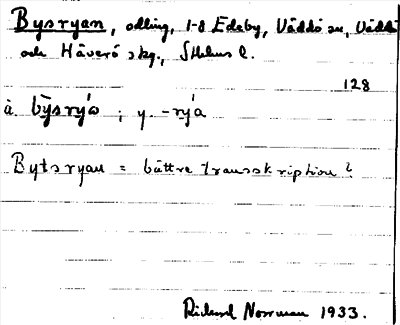 Bysryan, odling, 1-8 Edeby, Väddö sn, Väddö
och Häverö skg, Sthlms l.
128
à bỳsrý'a ; y. -rý'a
Bytsryan = bättre transskription?
Rickard Norrman 1933.